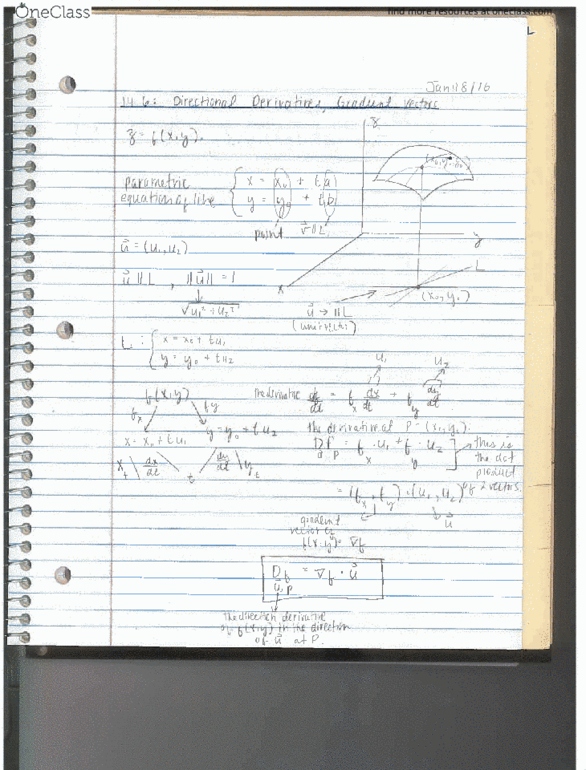 OneClass
find more resources at oneclass.com
Jan 18/16
14.6: Directional Derivatives, Gradient vectors
z = f(x,y),
z
parametric
equation of line
{ x = x₀ + t a
y = y₀ + t b
point v⃗ ∥ L
y
x
L
(x₀, y₀)
u⃗ = (u₁, u₂)
u⃗ ∥ L , ∥u⃗∥ = 1
√u₁² + u₂²
u⃗ → ∥L
(unit vector)
L : { x = x₀ + t u₁
y = y₀ + t u₂
u₁ u₂
f(x,y)
fx fy
The derivative df/dt = fx dx/dt + fy dy/dt
x = x₀ + t u₁ y = y₀ + t u₂
xt dx/dt t dy/dt yt
the derivative at P = (x₀, y₀)
D f p = fx · u₁ + fy · u₂
this is
the dot
product
of 2 vectors.
= (fx, fy) · (u₁, u₂)
u⃗
gradient
vector of
f(x,y) = ∇f
D u f p = ∇f · u⃗
the direction derivative
of f(x,y) in the direction
of u⃗ at P.